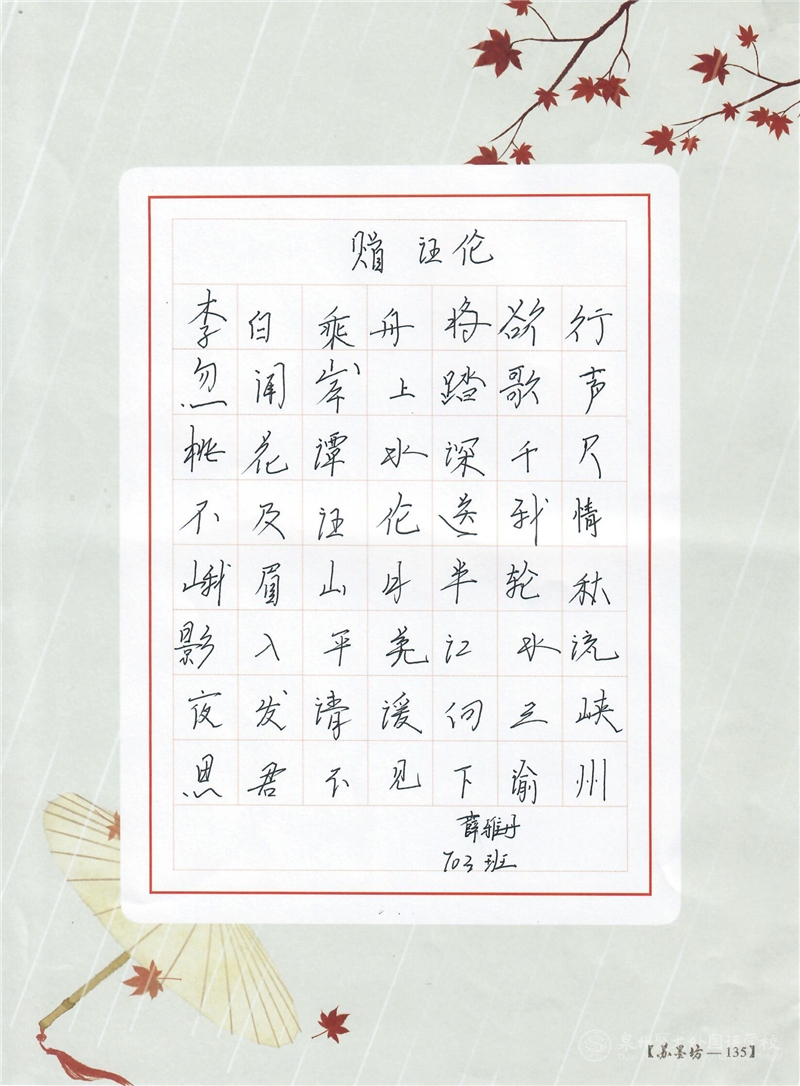 赠汪伦
李白乘舟将欲行
忽闻岸上踏歌声
桃花潭水深千尺
不及汪伦送我情
峨眉山月半轮秋
影入平羌江水流
夜发清溪向三峡
思君不见下渝州
薛雅丹
703班
【苏墨坊—135】